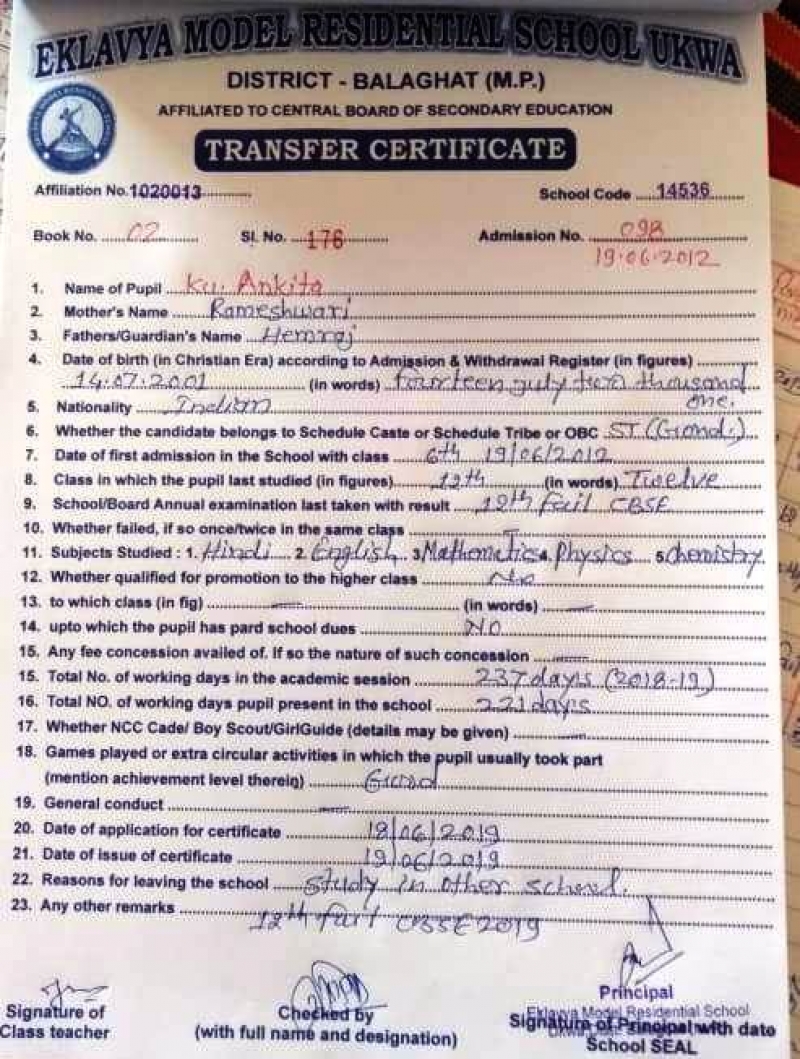 EKLAVYA MODEL RESIDENTIAL SCHOOL UKWA
DISTRICT - BALAGHAT (M.P.)
AFFILIATED TO CENTRAL BOARD OF SECONDARY EDUCATION
TRANSFER CERTIFICATE
Affiliation No. 1020013 School Code 14536
Book No. 02 Sl. No. 176 Admission No. 098
19.06.2012
1. Name of Pupil Ku. Ankita
2. Mother's Name Rameshwari
3. Fathers/Guardian's Name Hemraj
4. Date of birth (in Christian Era) according to Admission & Withdrawal Register (in figures)
14.07.2001 (in words) fourteen july two thousand
one.
5. Nationality Indian
6. Whether the candidate belongs to Schedule Caste or Schedule Tribe or OBC ST (Gond.)
7. Date of first admission in the School with class 6th 19/06/2012
8. Class in which the pupil last studied (in figures) 12th (in words) Twelve
9. School/Board Annual examination last taken with result 12th fail CBSE
10. Whether failed, if so once/twice in the same class
11. Subjects Studied : 1. Hindi 2. English 3 Mathematics 4. Physics 5. Chemistry.
12. Whether qualified for promotion to the higher class No
13. to which class (in fig) — (in words) —
14. upto which the pupil has pard school dues NO
15. Any fee concession availed of. If so the nature of such concession —
15. Total No. of working days in the academic session 237 days (2018-19)
16. Total NO. of working days pupil present in the school 221 days
17. Whether NCC Cade/ Boy Scout/GirlGuide (details may be given) —
18. Games played or extra circular activities in which the pupil usually took part
(mention achievement level thereig)
19. General conduct —
20. Date of application for certificate 18/06/2019
21. Date of issue of certificate 19/06/2019
22. Reasons for leaving the school Study in other school.
23. Any other remarks 12th fail CBSE 2019
Principal
Eklavya Model Residential School
Signature of Class teacher
Checked by
(with full name and designation)
Signature of Principal with date
School SEAL